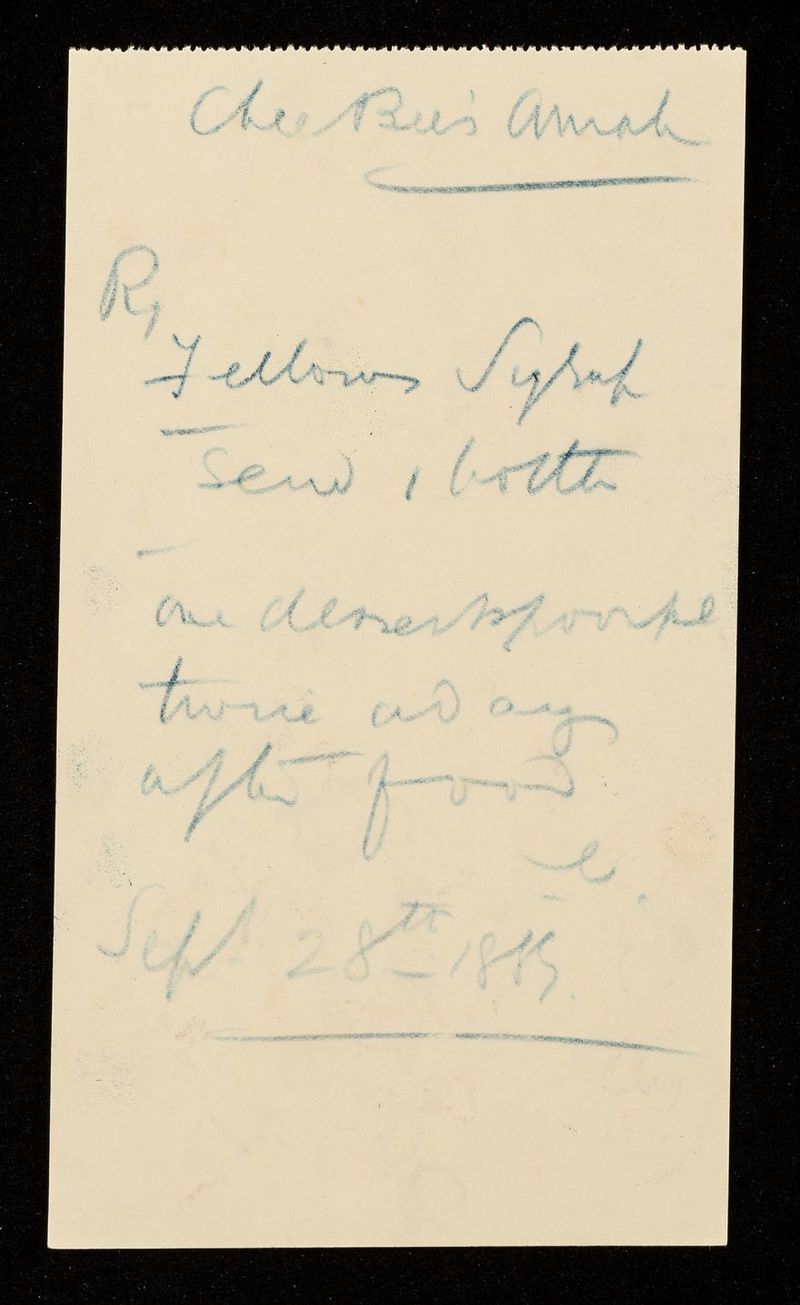 Chee Bee's Amah
Rx
Fellows Syrup
Send 1 bottle
one dessertspoonful
twice a day
after food
Sept 28th